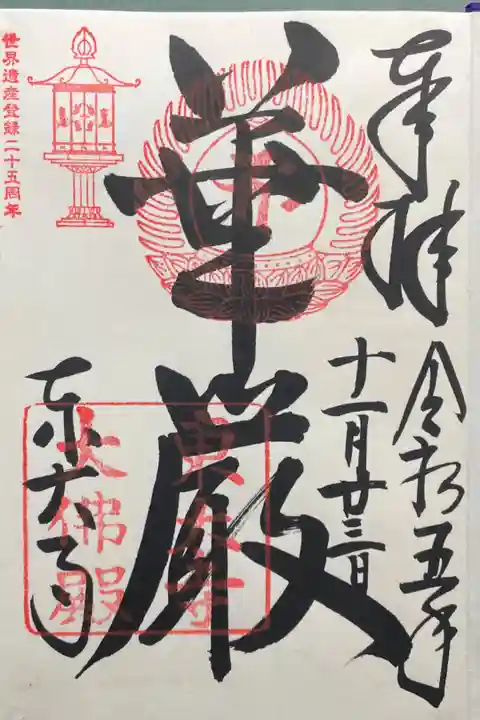 奉拝
令和五年
十一月廿三日
華厳
東大寺
東大寺
大佛殿
世界遺産登録二十五周年